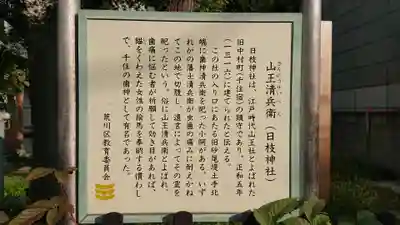 山王清兵衛（日枝神社）
さんのうせいべえ
日枝神社は、江戸時代山王社とよばれた
旧中村町（千住宿）の鎮守であり、正和五年
（一三一六）に建てられたと伝える。
この社の入り口にあたる旧砂尾堤土手北
端に歯神清兵衛を祀った小祠がある。いず
れかの藩士清兵衛が虫歯の痛みに耐えかね
てこの地で切腹し、遺言によってその霊を
祀ったという。俗に山王清兵衛とよばれ、
歯痛に悩む者が祈願して効き目があれば、
錨をくわえた女性の絵馬を奉納する慣わし
で、千住の歯神として有名であった。
荒川区教育委員会